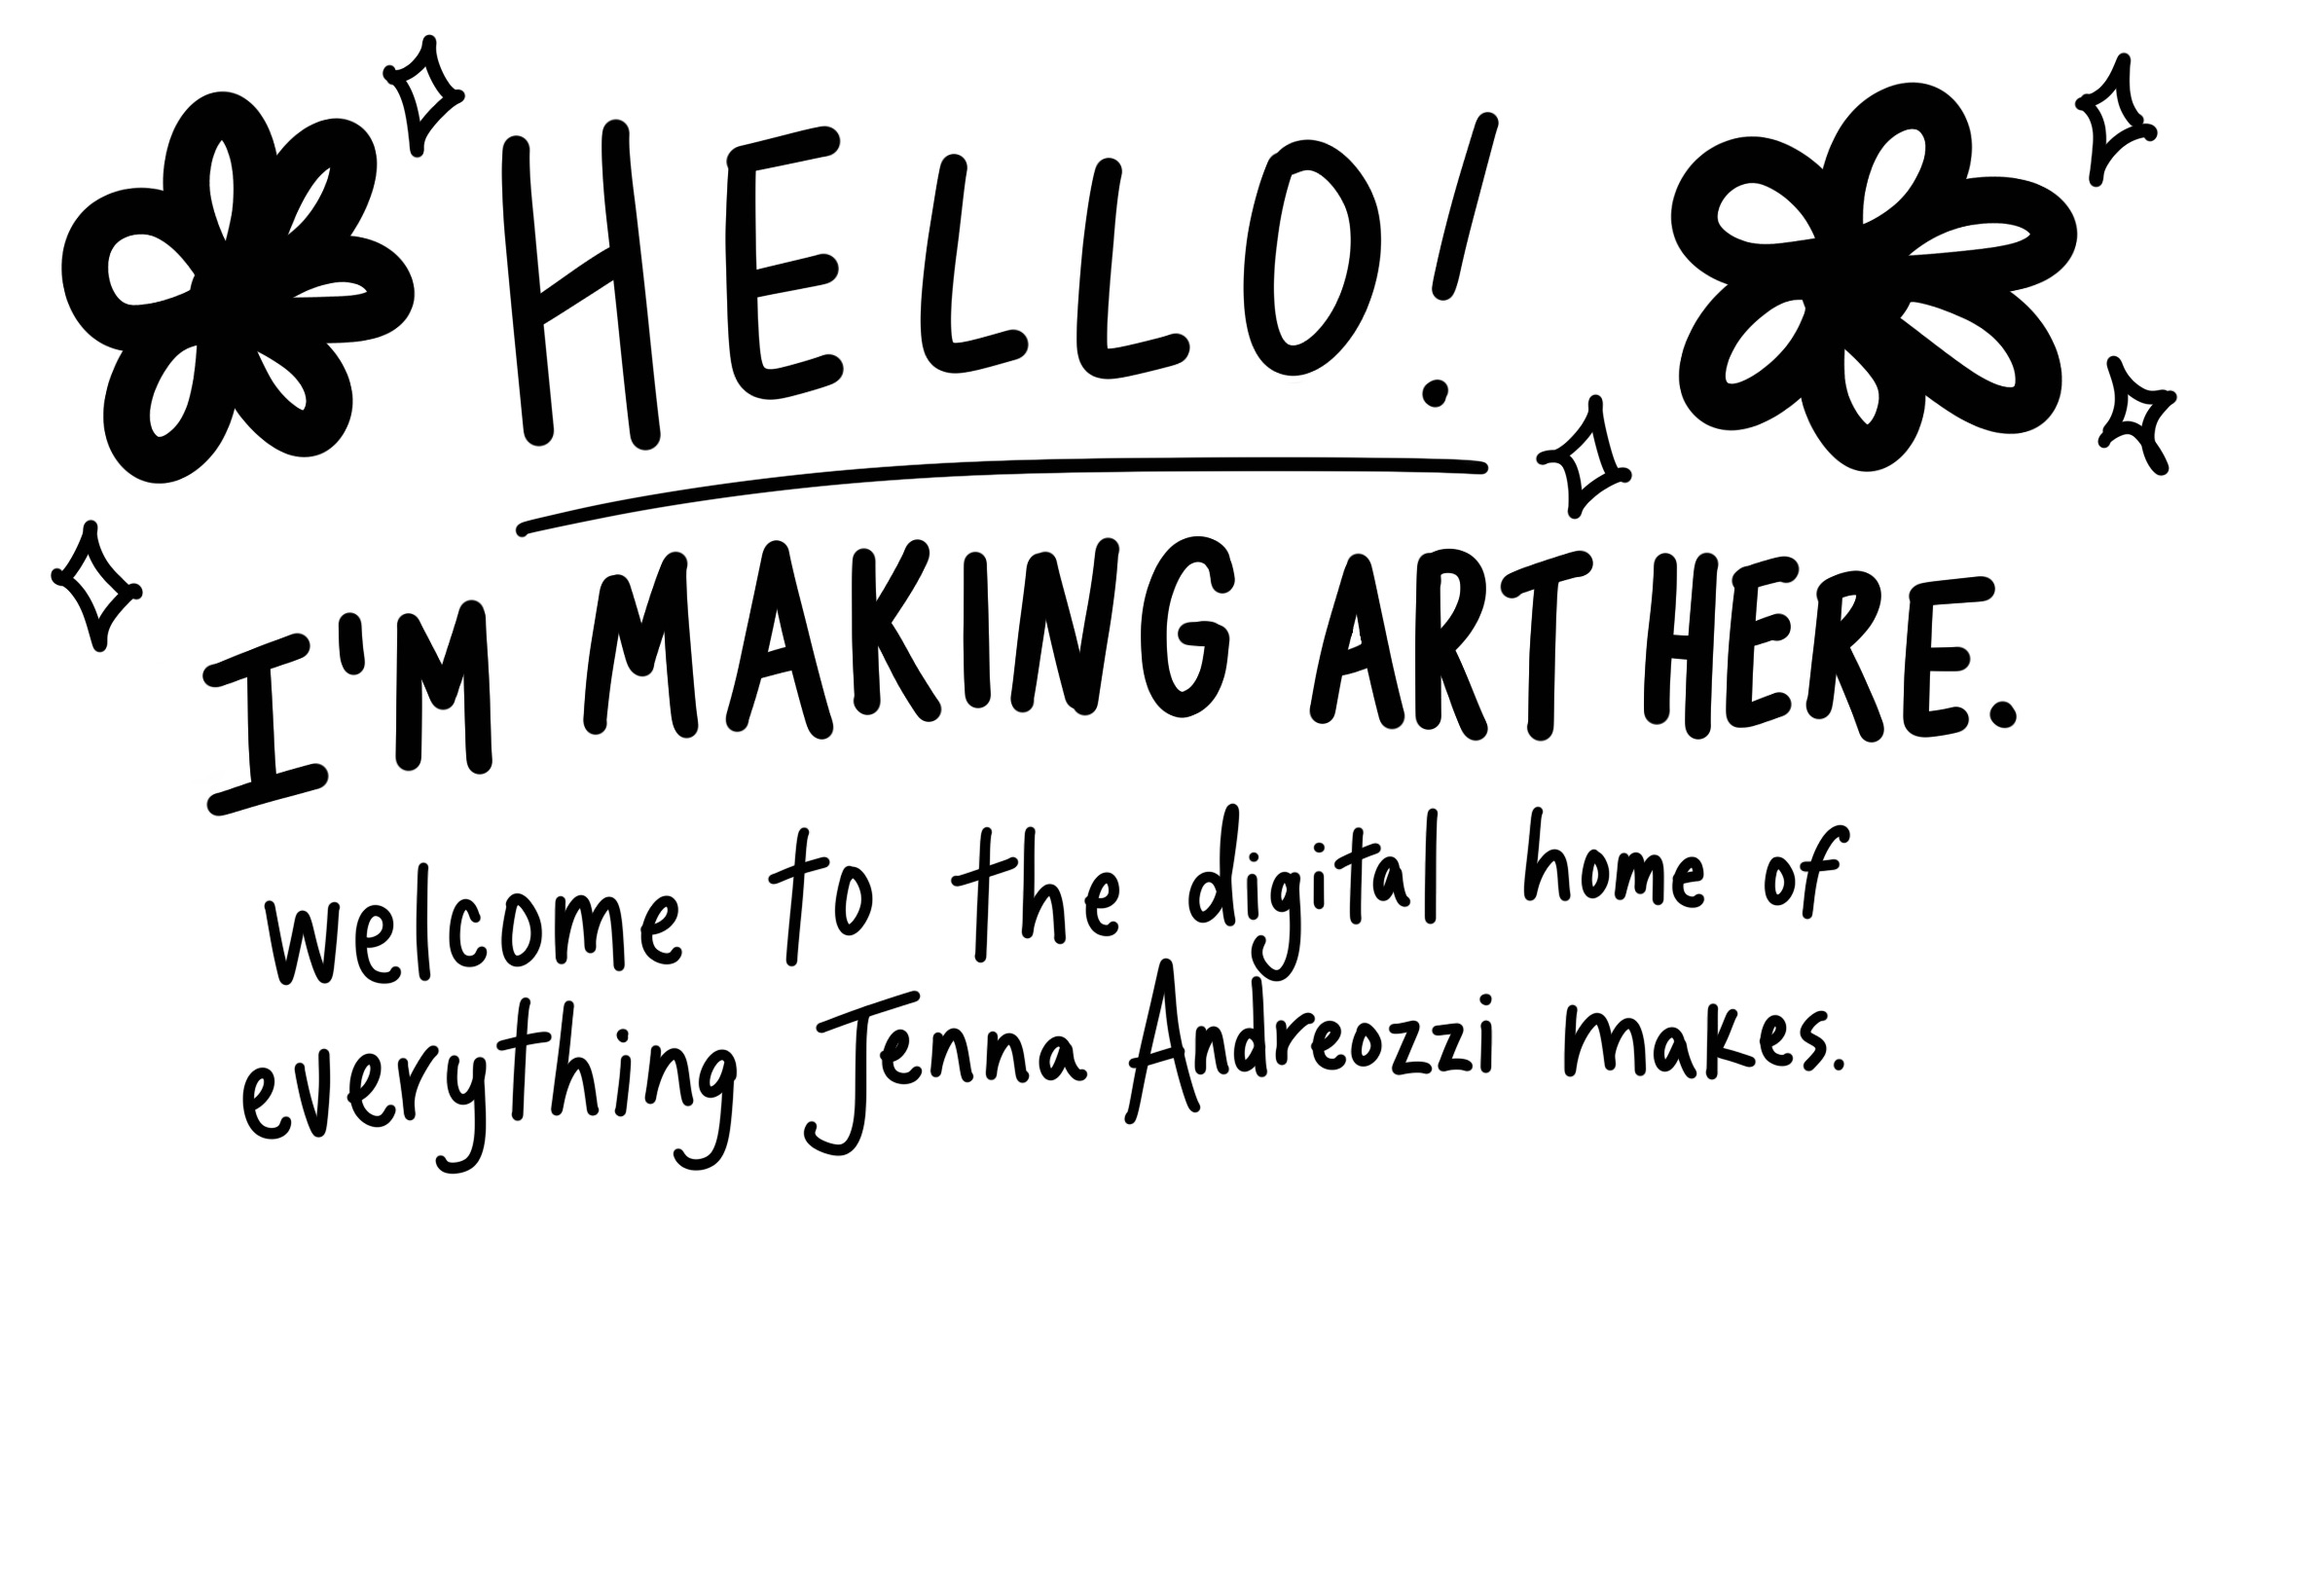 HELLO!
I'M MAKING ART HERE.
welcome to the digital home of
everything Jenna Andreozzi makes.